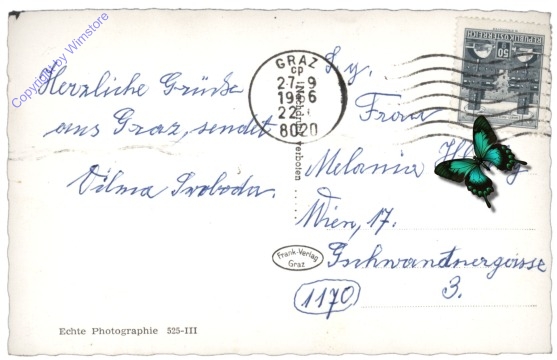 Copyright by Wimstore
Herzliche Grüße
aus Graz, sendet
Vilma Svoboda.
GRAZ
cp
27-9
1966
22
8020
REPUBLIK ÖSTERREICH
50
Frau
Melanie
Wien, 17.
Gschwandnergasse
3.
1170
Nachdruck verboten
Frank-Verlag
Graz
Echte Photographie 525-III